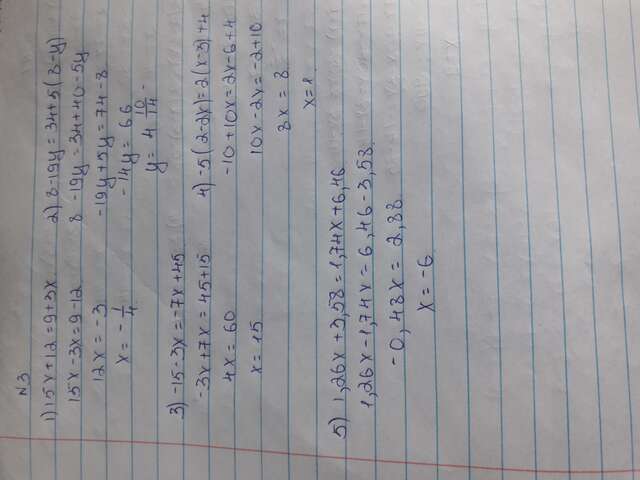 N3
1) 15x+12=9+3x
15x-3x=9-12
12x=-3
x=-1/4
2) 8-19y=34+5(8-y)
8-19y=34+40-5y
-19y+5y=74-8
-14y=66
y=4 10/14
3) -15-3x=-7x+45
-3x+7x=45+15
4x=60
x=15
4) -5(2-2x)=2(x-3)+4
-10+10x=2x-6+4
10x-2x=-2+10
8x=8
x=1
5) 1,26x+3,58=1,74x+6,46
1,26x-1,74x=6,46-3,58
-0,48x=2,88
x=-6